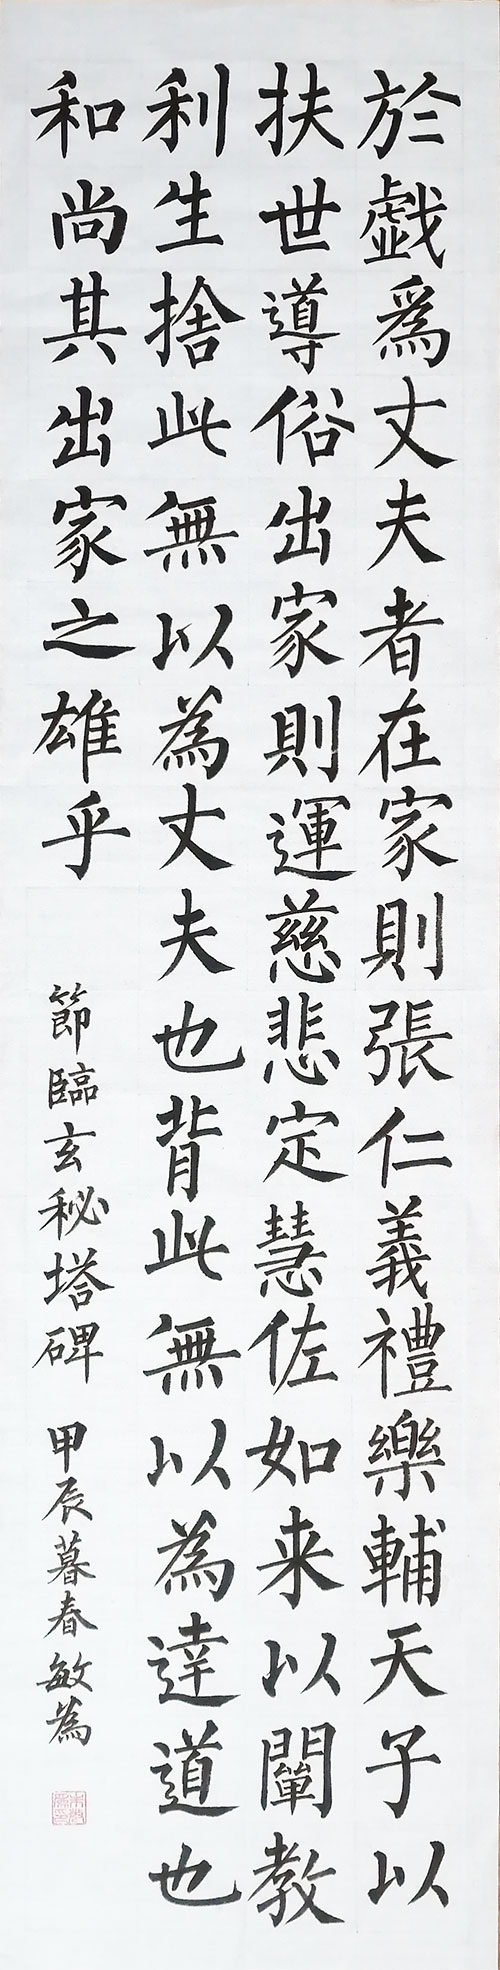 於戯爲丈夫者在家則張仁義禮樂輔天子以
扶世導俗出家則運慈悲定慧佐如来以闡教
利生捨此無以為丈夫也背此無以為達道也
和尚其出家之雄乎
節臨玄秘塔碑 甲辰暮春敏為